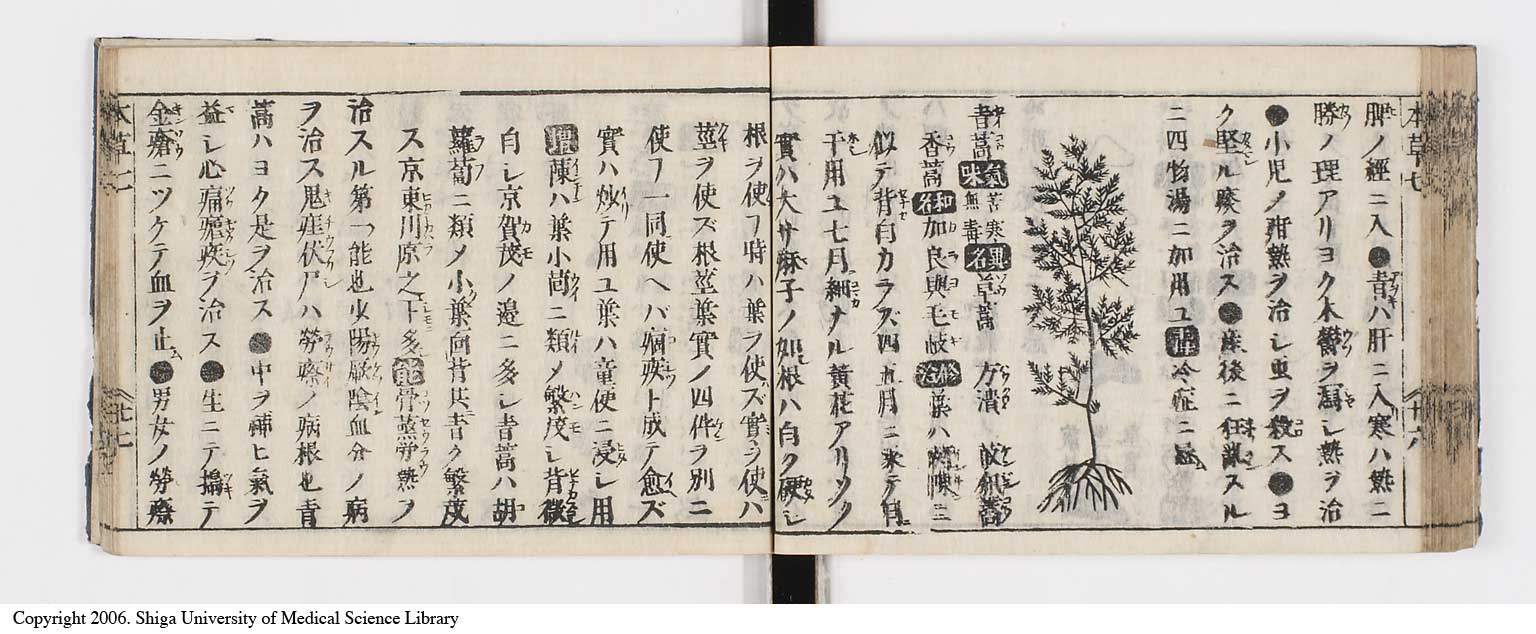 本草七
十六
脾ノ經ニ入●青ハ肝ニ入寒ハ熱ニ
勝ノ理アリヨク木鬱ヲ瀉シ熱ヲ治
●小児ノ疳熱ヲ治シ虫ヲ殺ス●ヨ
ク堅ル痰ヲ治ス●産後ニ狂乱スル
ニ四物湯ニ加用ユ
冷症ニ忌
青蒿 氣味 苦寒無毒 異名 草蒿 方潰 菣 𦽅蒿
香蒿 和名 加良與毛岐 修治 葉ハ茵陳ニ
似テ背白カラズ四五月ニ来テ日
干用ユ七月細ナル黄花アリソノ
實ハ大サ麻子ノ如根ハ白ク硬シ
根ヲ使フ時ハ葉ヲ使ズ實ヲ使ハ
莖ヲ使ズ根莖葉實ノ四件ヲ別ニ
使フ一同使ヘバ痼疾ト成テ愈ズ
實ハ炒テ用ユ葉ハ童便ニ浸シ用
陳ハ葉小茴ニ類メ繁茂シ背微
白シ京賀茂ノ邉ニ多シ青蒿ハ胡
蘿蔔ニ類メ小葉向背共青ク繁茂
ス京東川原之下多 能 骨蒸労熱ノ
治スル第一能也少陽厥陰血分ノ病
ヲ治ス鬼疰伏尸ハ勞瘵ノ病根也青
蒿ハヨク是ヲ治ス●中ヲ補ヒ氣ヲ
益シ心痛瘧疾ヲ治ス●生ニテ搗テ
金瘡ニツケテ血ヲ止●男女ノ勞瘵
本草七
十七
Copyright 2006. Shiga University of Medical Science Library